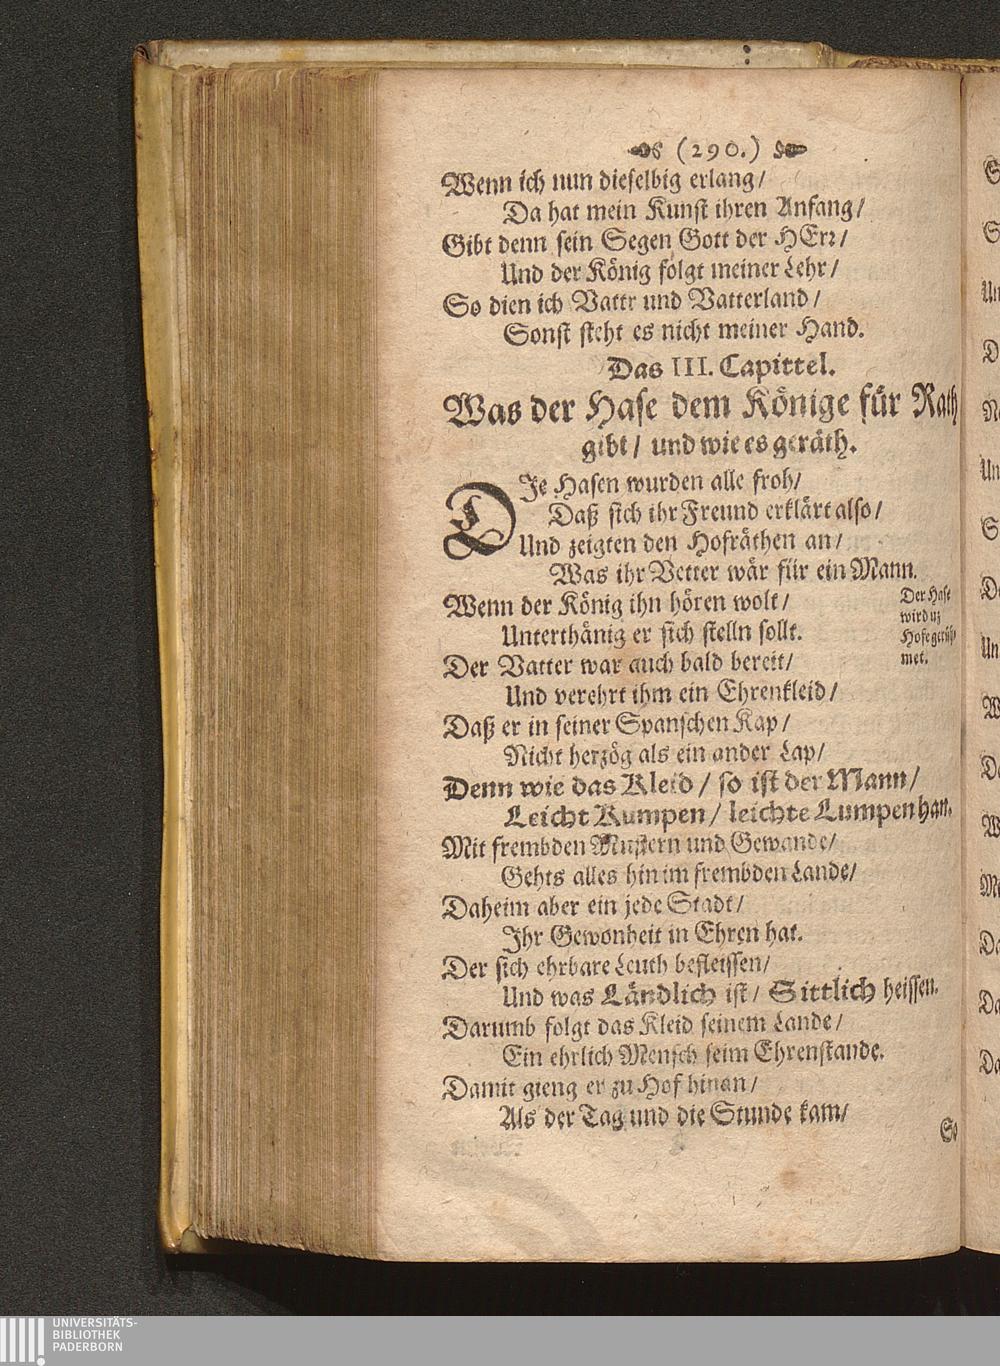 (290.)
Wenn ich nun dieselbig erlang/
Da hat mein Kunst ihren Anfang/
Gibt denn sein Segen Gott der HErr/
Und der König folgt meiner Lehr/
So dien ich Vattr und Vatterland/
Sonst steht es nicht meiner Hand.
Das III. Capittel.
Was der Hase dem Könige für Rath
gibt/ und wie es geräth.
DIe Hasen wurden alle froh/
Daß sich ihr Freund erklärt also/
Und zeigten den Hofräthen an/
Was ihr Vetter wär für ein Mann.
Wenn der König ihn hören wolt/
Unterthänig er sich stelln sollt.
Der Hase
wird uz
Hofe gerüh-
met.
Der Vatter war auch bald bereit/
Und verehrt ihm ein Ehrenkleid/
Daß er in seiner Spanschen Kap/
Nicht herzög als ein ander Lap/
Denn wie das Kleid/ so ist der Mann/
Leicht Kumpen/ leichte Lumpen han.
Mit frembden Mustern und Gewande/
Gehts alles hin im frembden Lande/
Daheim aber ein jede Stadt/
Ihr Gewonheit in Ehren hat.
Der sich ehrbare Leuth befleissen/
Und was Ländlich ist/ Sittlich heissen.
Darumb folgt das Kleid seinem Lande/
Ein ehrlich Mensch seim Ehrenstande.
Damit gieng er zu Hof hinan/
Als der Tag und die Stunde kam/
So
UNIVERSITÄTS-
BIBLIOTHEK
PADERBORN